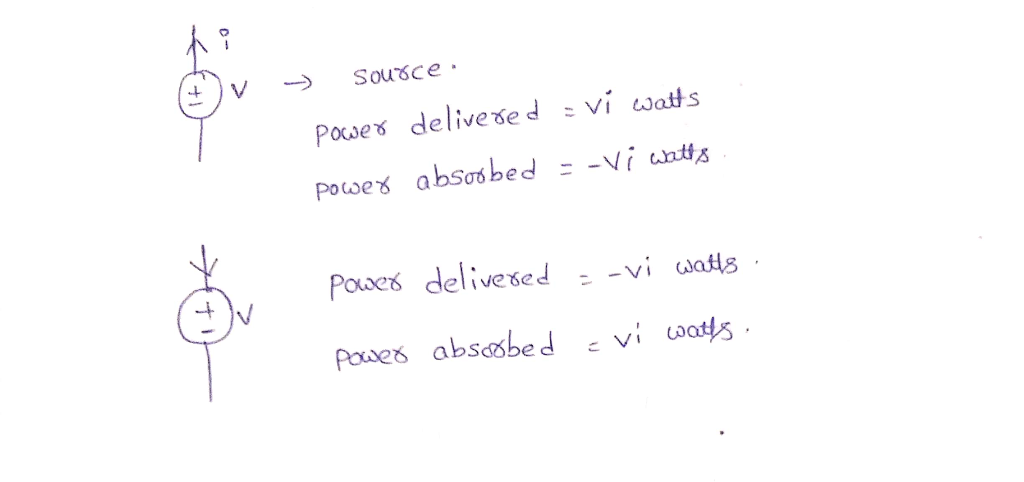 i
+
-
V → source.
Power delivered = vi watts
Power absorbed = -vi watts
Power delivered = -vi watts.
+
-
V
Power absorbed = vi watts.